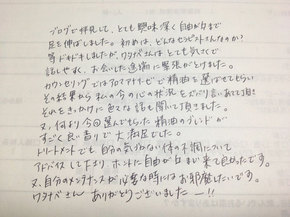 ブログで拝見して、とても興味深く自由が丘まで
足を伸ばしました。初めは、どんなセラピストさんなのか？
等ドキドキしましたが、ワタナベさんは、とても気さくで
話しやすく、お会いした途端に緊張がとけました。
カウンセリングではアロマテイナビで精油を選ばせてもらい
その結果から私の今の心の状況をズバリ言いあて頂き
それをきっかけに色々な話も聞いて頂きました。
又、何より今回選んでもらった精油のブレンドが
すごく良い香りで大満足でした。
トリートメントでも自分の気づかない体の不調について
アドバイスして下さり、ホントに自由が丘まで来て良かったです。
又、自分のメンテナンスが必要な時にはお邪魔したいです。
ワタナベさん ありがとうございましたー!!